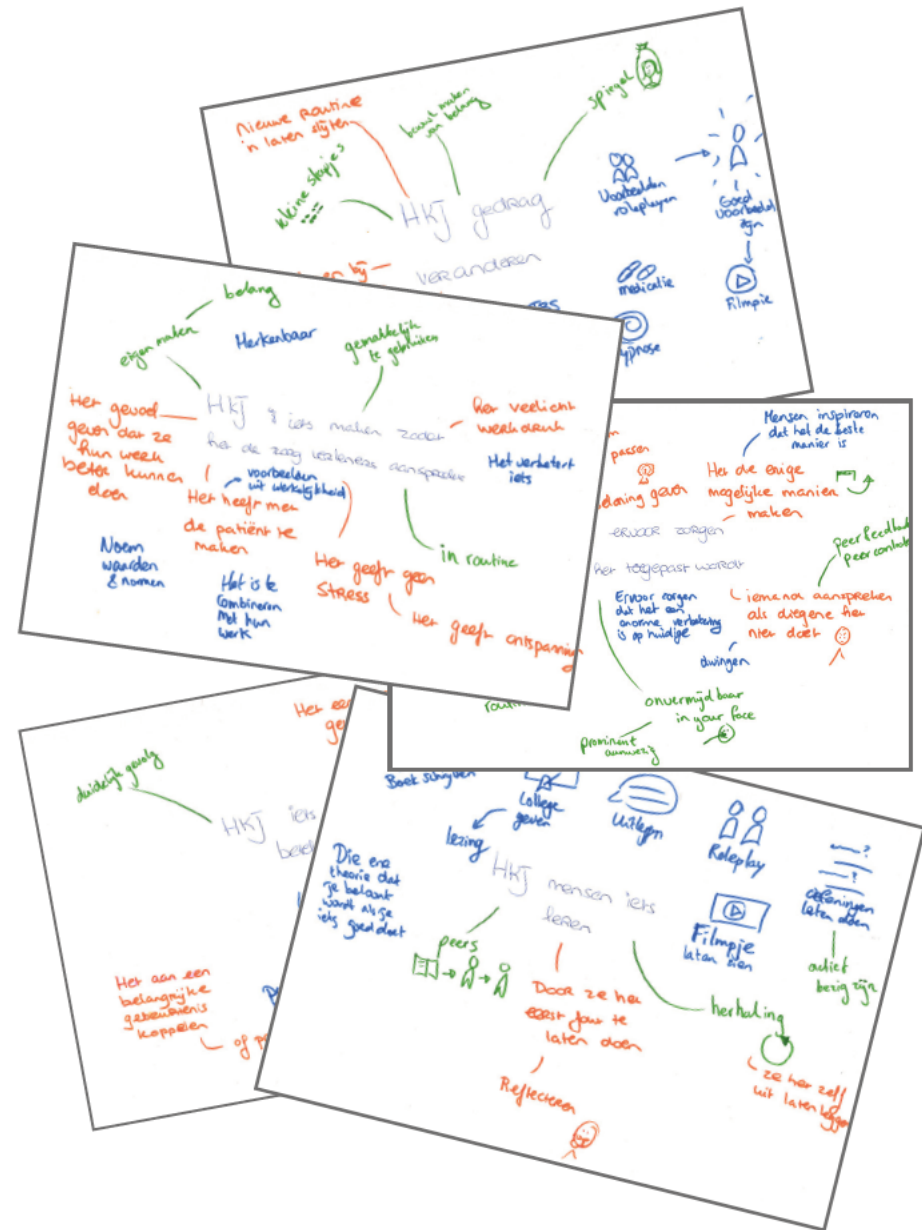 Nieuwe routine
in laten slijten
bewust maken
van belang
spiegel
kleine stapjes
HKJ gedrag
veranderen
Voorbeelden
roleplayen
Goed
voorbeeld
zijn
medicatie
Filmpje
belang
eigen maken
Herkenbaar
gemakkelijk
te gebruiken
HKJ iets maken zodat
het de zorgverleners aanspreekt
Het gevoel
geven dat ze
hun werk
beter kunnen
doen
het verlicht
werkdruk
Het verbetert
iets
voorbeelden
uit werkelijkheid
Het heeft met
de patiënt te
maken
in routine
Noem
waarden
& normen
Het is te
combineren
met hun
werk
Het geeft geen
stress
Het geeft ontspanning
passen
beloning geven
Mensen inspireren
dat het de beste
manier is
Het de enige
mogelijke manier
maken
ervoor zorgen
het toegepast wordt
peer feedback
peer controle
Ervoor zorgen
dat het een
enorme verbetering
is op huidige
iemand aanspreken
als diegene het
niet doet
dwingen
onvermijdbaar
in your face
prominent
aanwezig
duidelijk gevolg
HKJ iets
Het aan een
belangrijke
gebeurtenis
koppelen
Boek schrijven
College
geven
Uitleggen
Roleplay
oefeningen
laten doen
lezing
HKJ mensen iets
leren
Die ene
theorie dat
je beloont
wordt als je
iets goed doet
Filmpje
laten zien
actief
bezig zijn
peers
Door ze het
eerst fout te
laten doen
herhaling
ze het zelf
uit laten leggen
Reflecteren